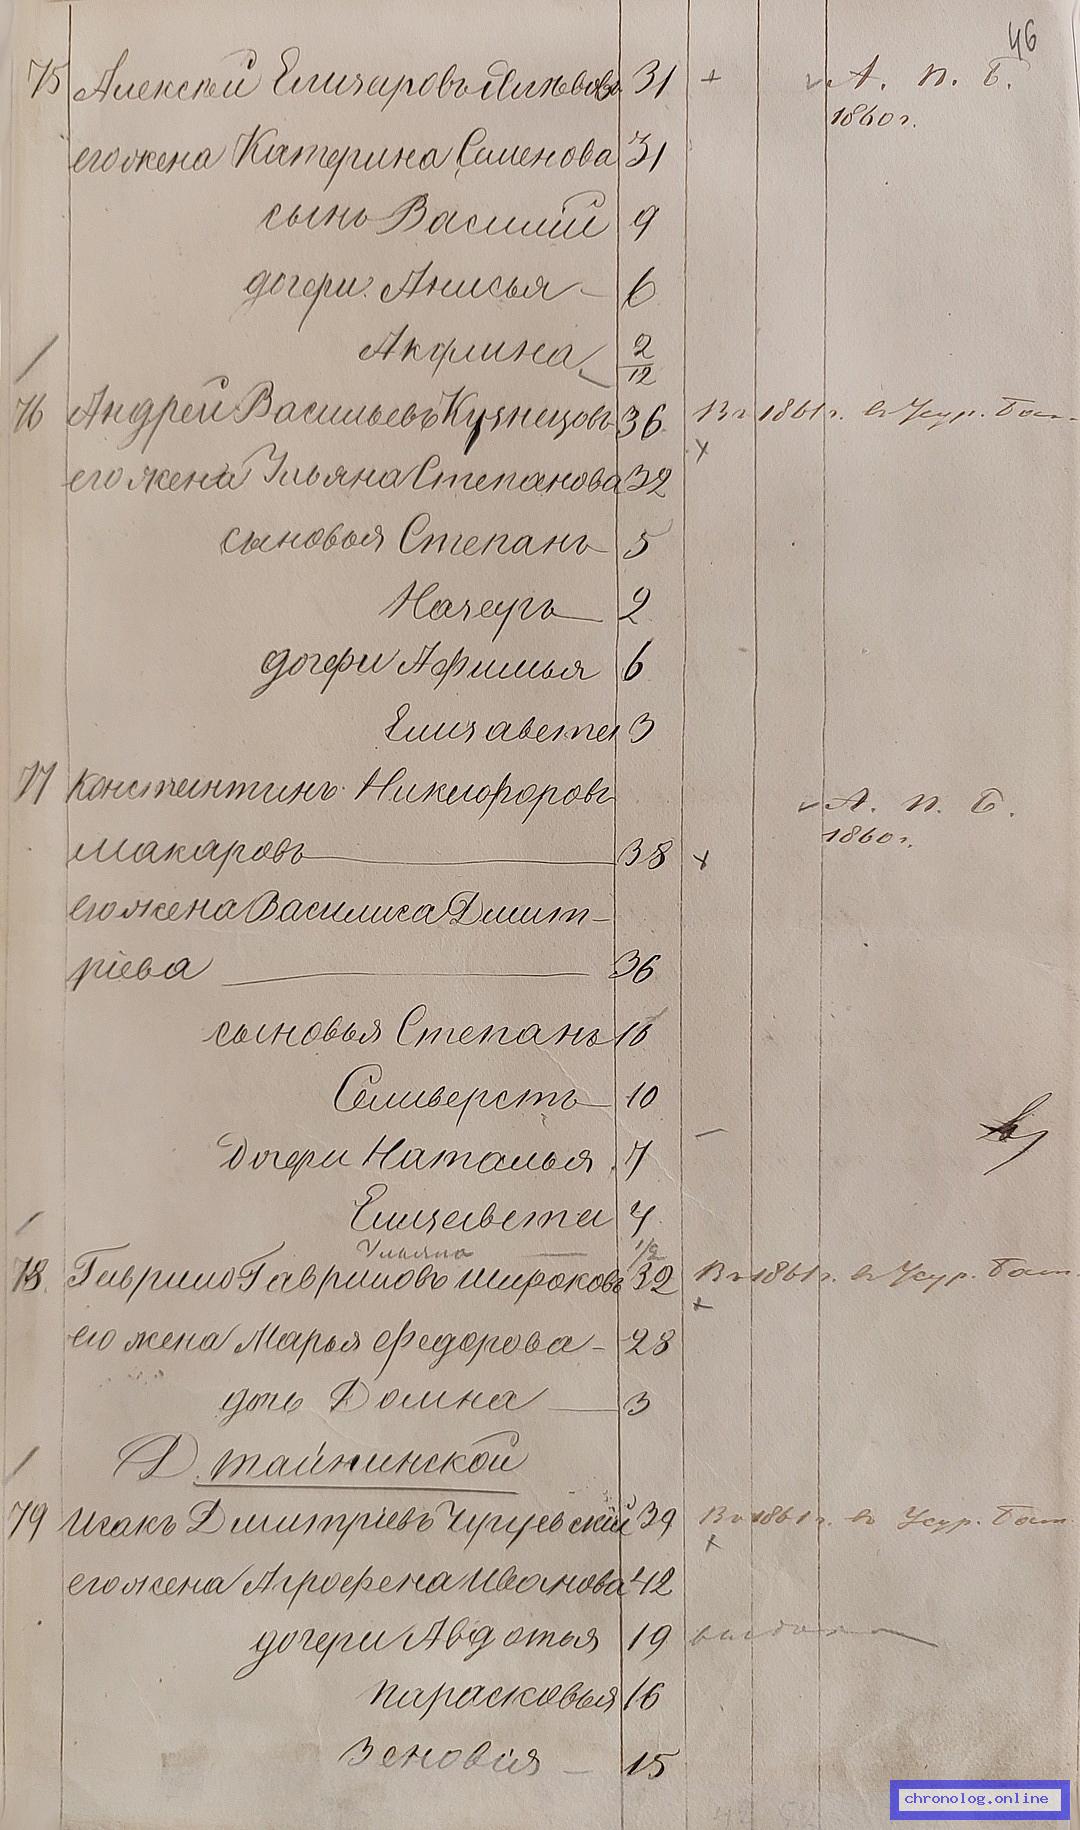 46
75 Алексѣй Елизаровъ 31 + А. п. Б.
1860 г.
его жена Катерина Семенова 31
сынъ Василій 9
дочери: Анисья 6
Акулина 2/12
76 Андрей Васильевъ Кузнецовъ 36 Въ 1861 г. въ Усур. бат.
его жена Ульяна Степанова 32 х
сыновья Степанъ 5
2
дочери Афимья 6
Елизавета 3
77 Константинъ Никифоровъ А. п. Б.
Макаровъ 38 х 1860 г.
его жена Василиса Дмит-
ріева 36
сыновья Степанъ 16
Селиверстъ 10
дочери Наталья 7
Елизавета 4
Ульяна 1/2
78. Гаврило Гавриловъ Широковъ 32 Въ 1861 г. въ Усур. бат.
его жена Марья Федорова - 28 х
дочь Домна 3
Д. Тайнинской
79 Исакъ Дмитріевъ Чугуевскій 39 Въ 1861 г. въ Усур. бат.
его жена Агрофена Иванова 42 х
дочери Авдотья 19 выдана
Парасковья 16
Зеновія 15
chronolog.online